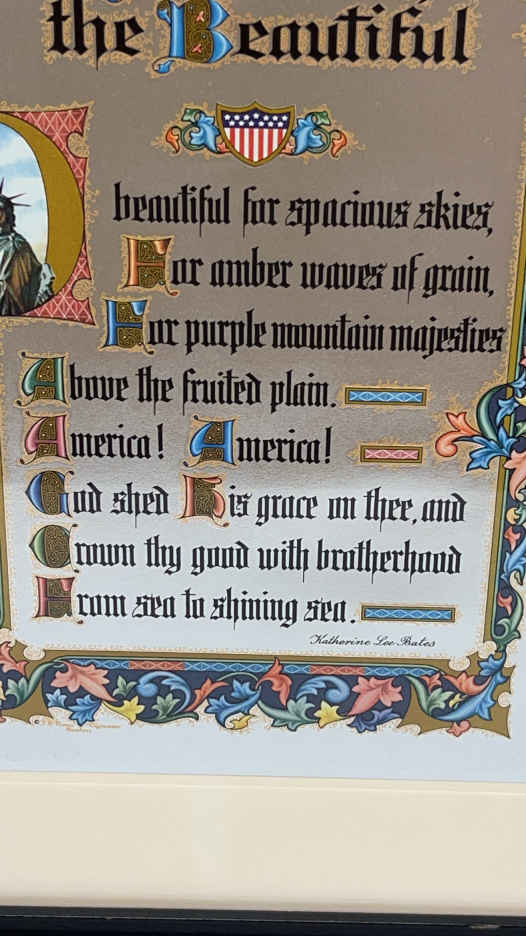 the Beautiful
O beautiful for spacious skies,
For amber waves of grain,
For purple mountain majesties
Above the fruited plain.
America! America!
God shed His grace on thee, and
Crown thy good with brotherhood
From sea to shining sea.
Katherine Lee Bates